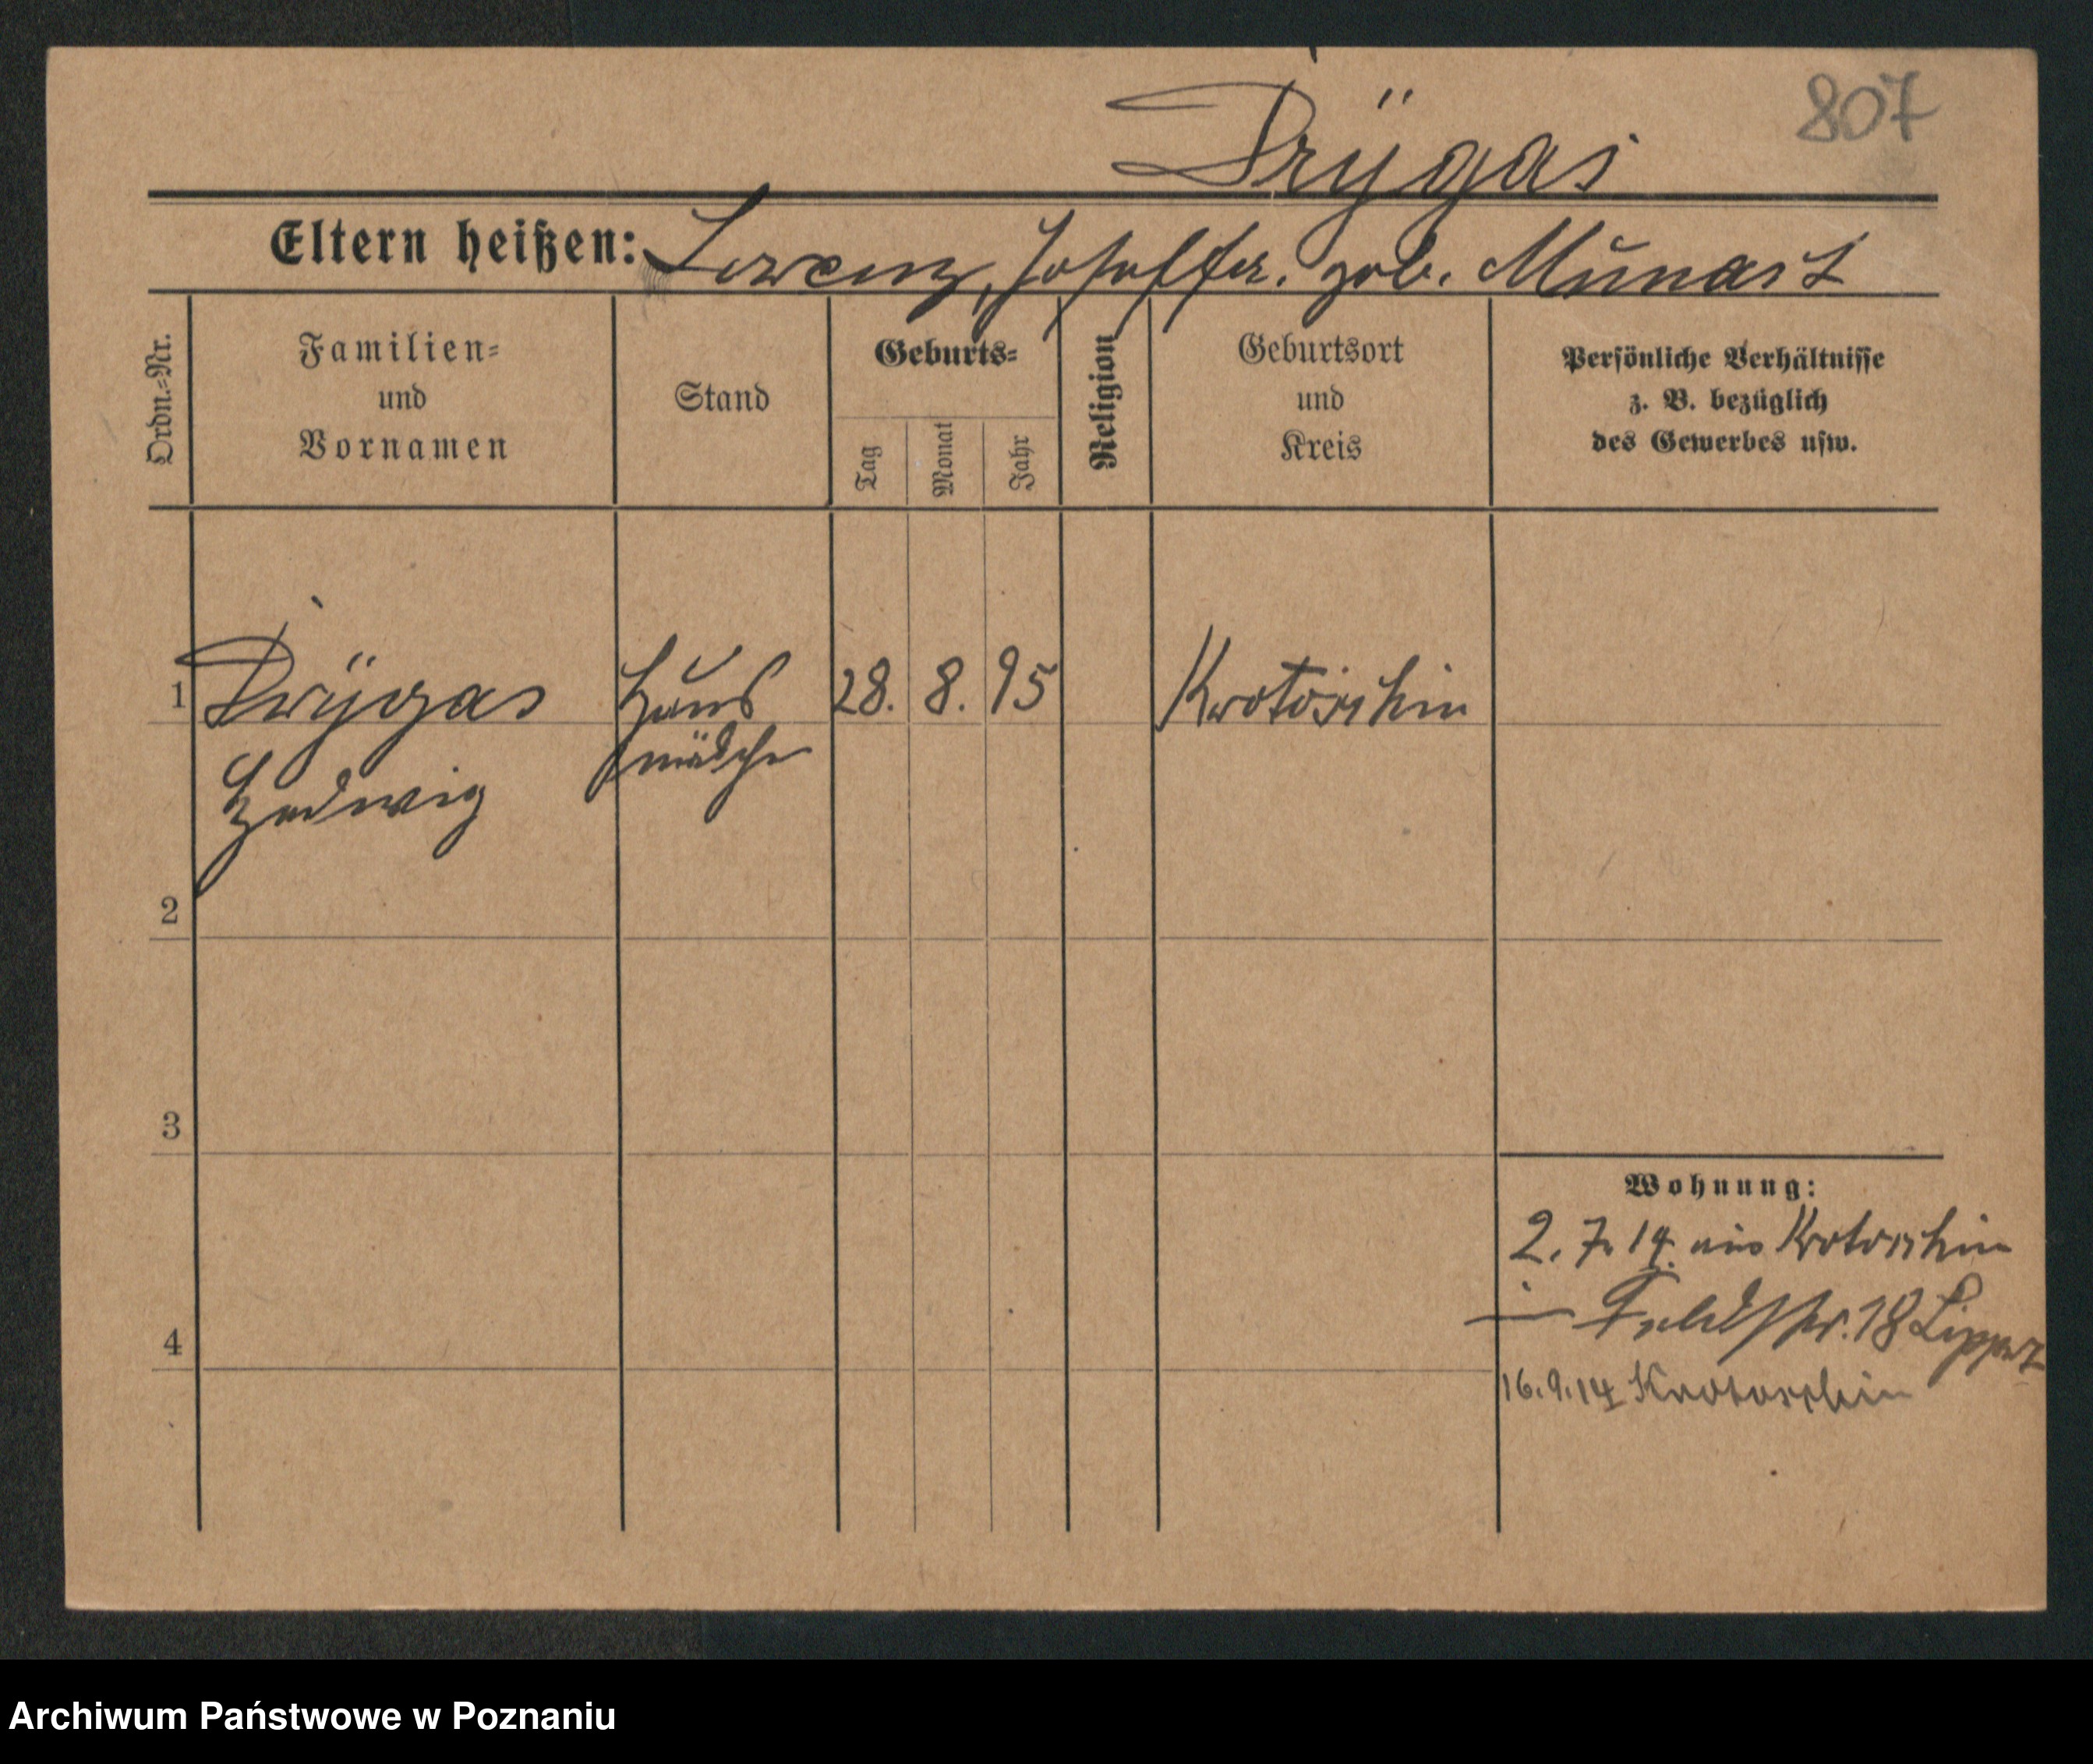 807
Drÿgas
Eltern heißen: Lorenz, Josepha. geb. Munast
Ordn.-Nr.
Familien-
und
Vornamen
Stand
Geburts-
Tag
Monat
Jahr
Religion
Geburtsort
und
Kreis
Persönliche Verhältnisse
z. B. bezüglich
des Gewerbes usw.
1 Drÿgas Haus 28. 8. 95 Krotoschin
mädche
Hedwig
2
3
4
Wohnung:
2. 7. 14. aus Krotoschin
Feldstr. 18
16.9.14 Krotoschin
Archiwum Państwowe w Poznaniu